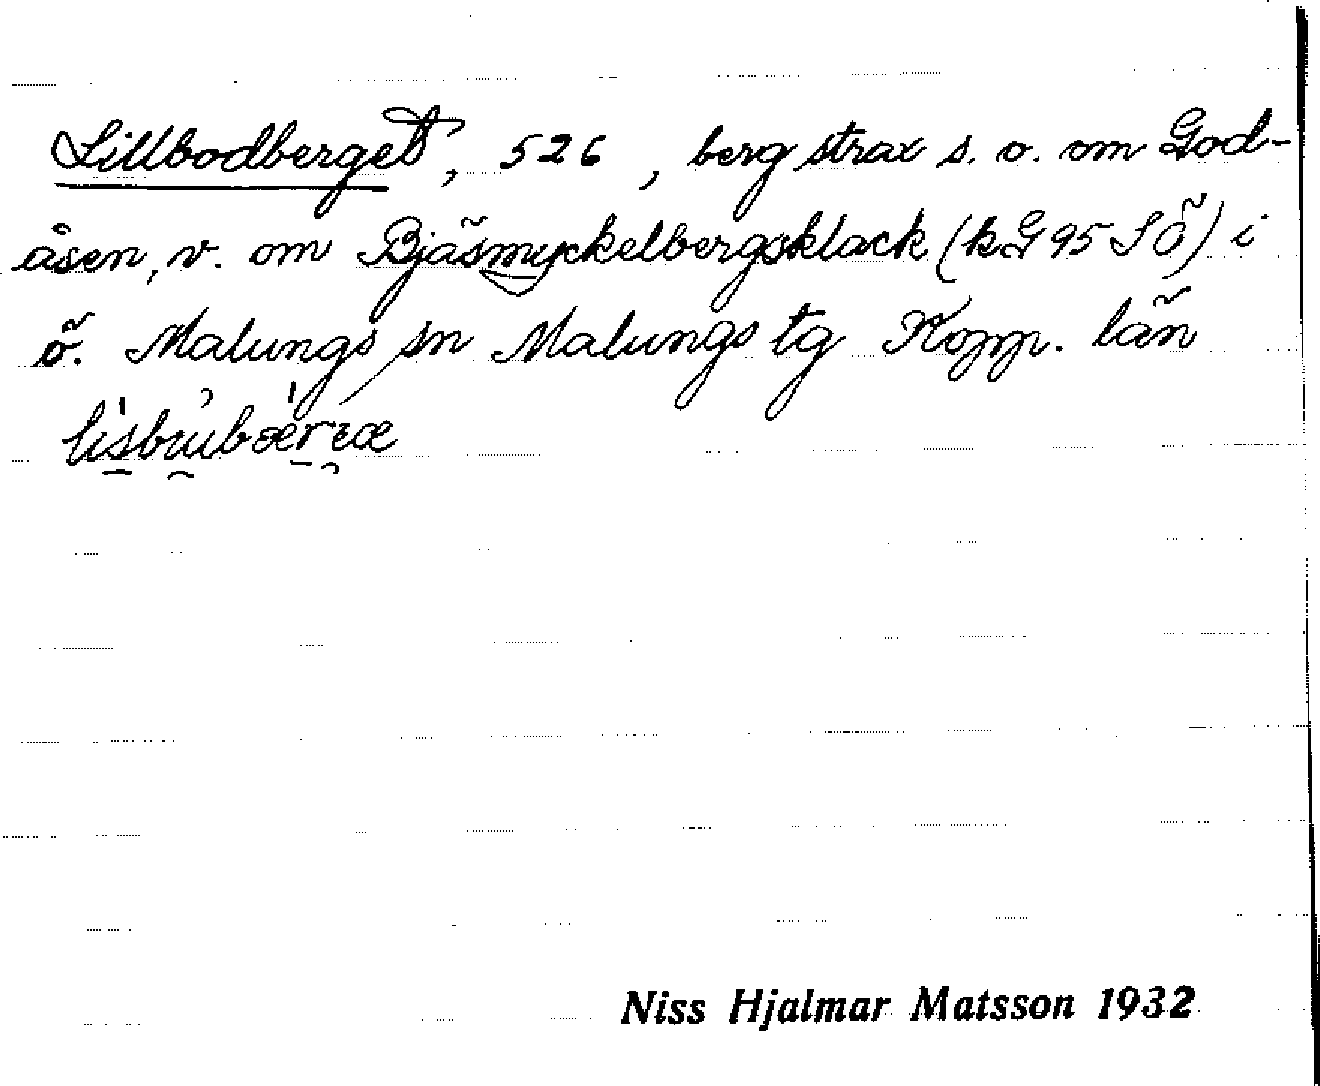 Lillbodberget, 526, berg strax s. o. om God-
åsen, v. om Bjäsmyckelbergsklack (k G 95 S Ö) i
ö. Malungs sn Malungs tg Kopp. län
Niss Hjalmar Matsson 1932